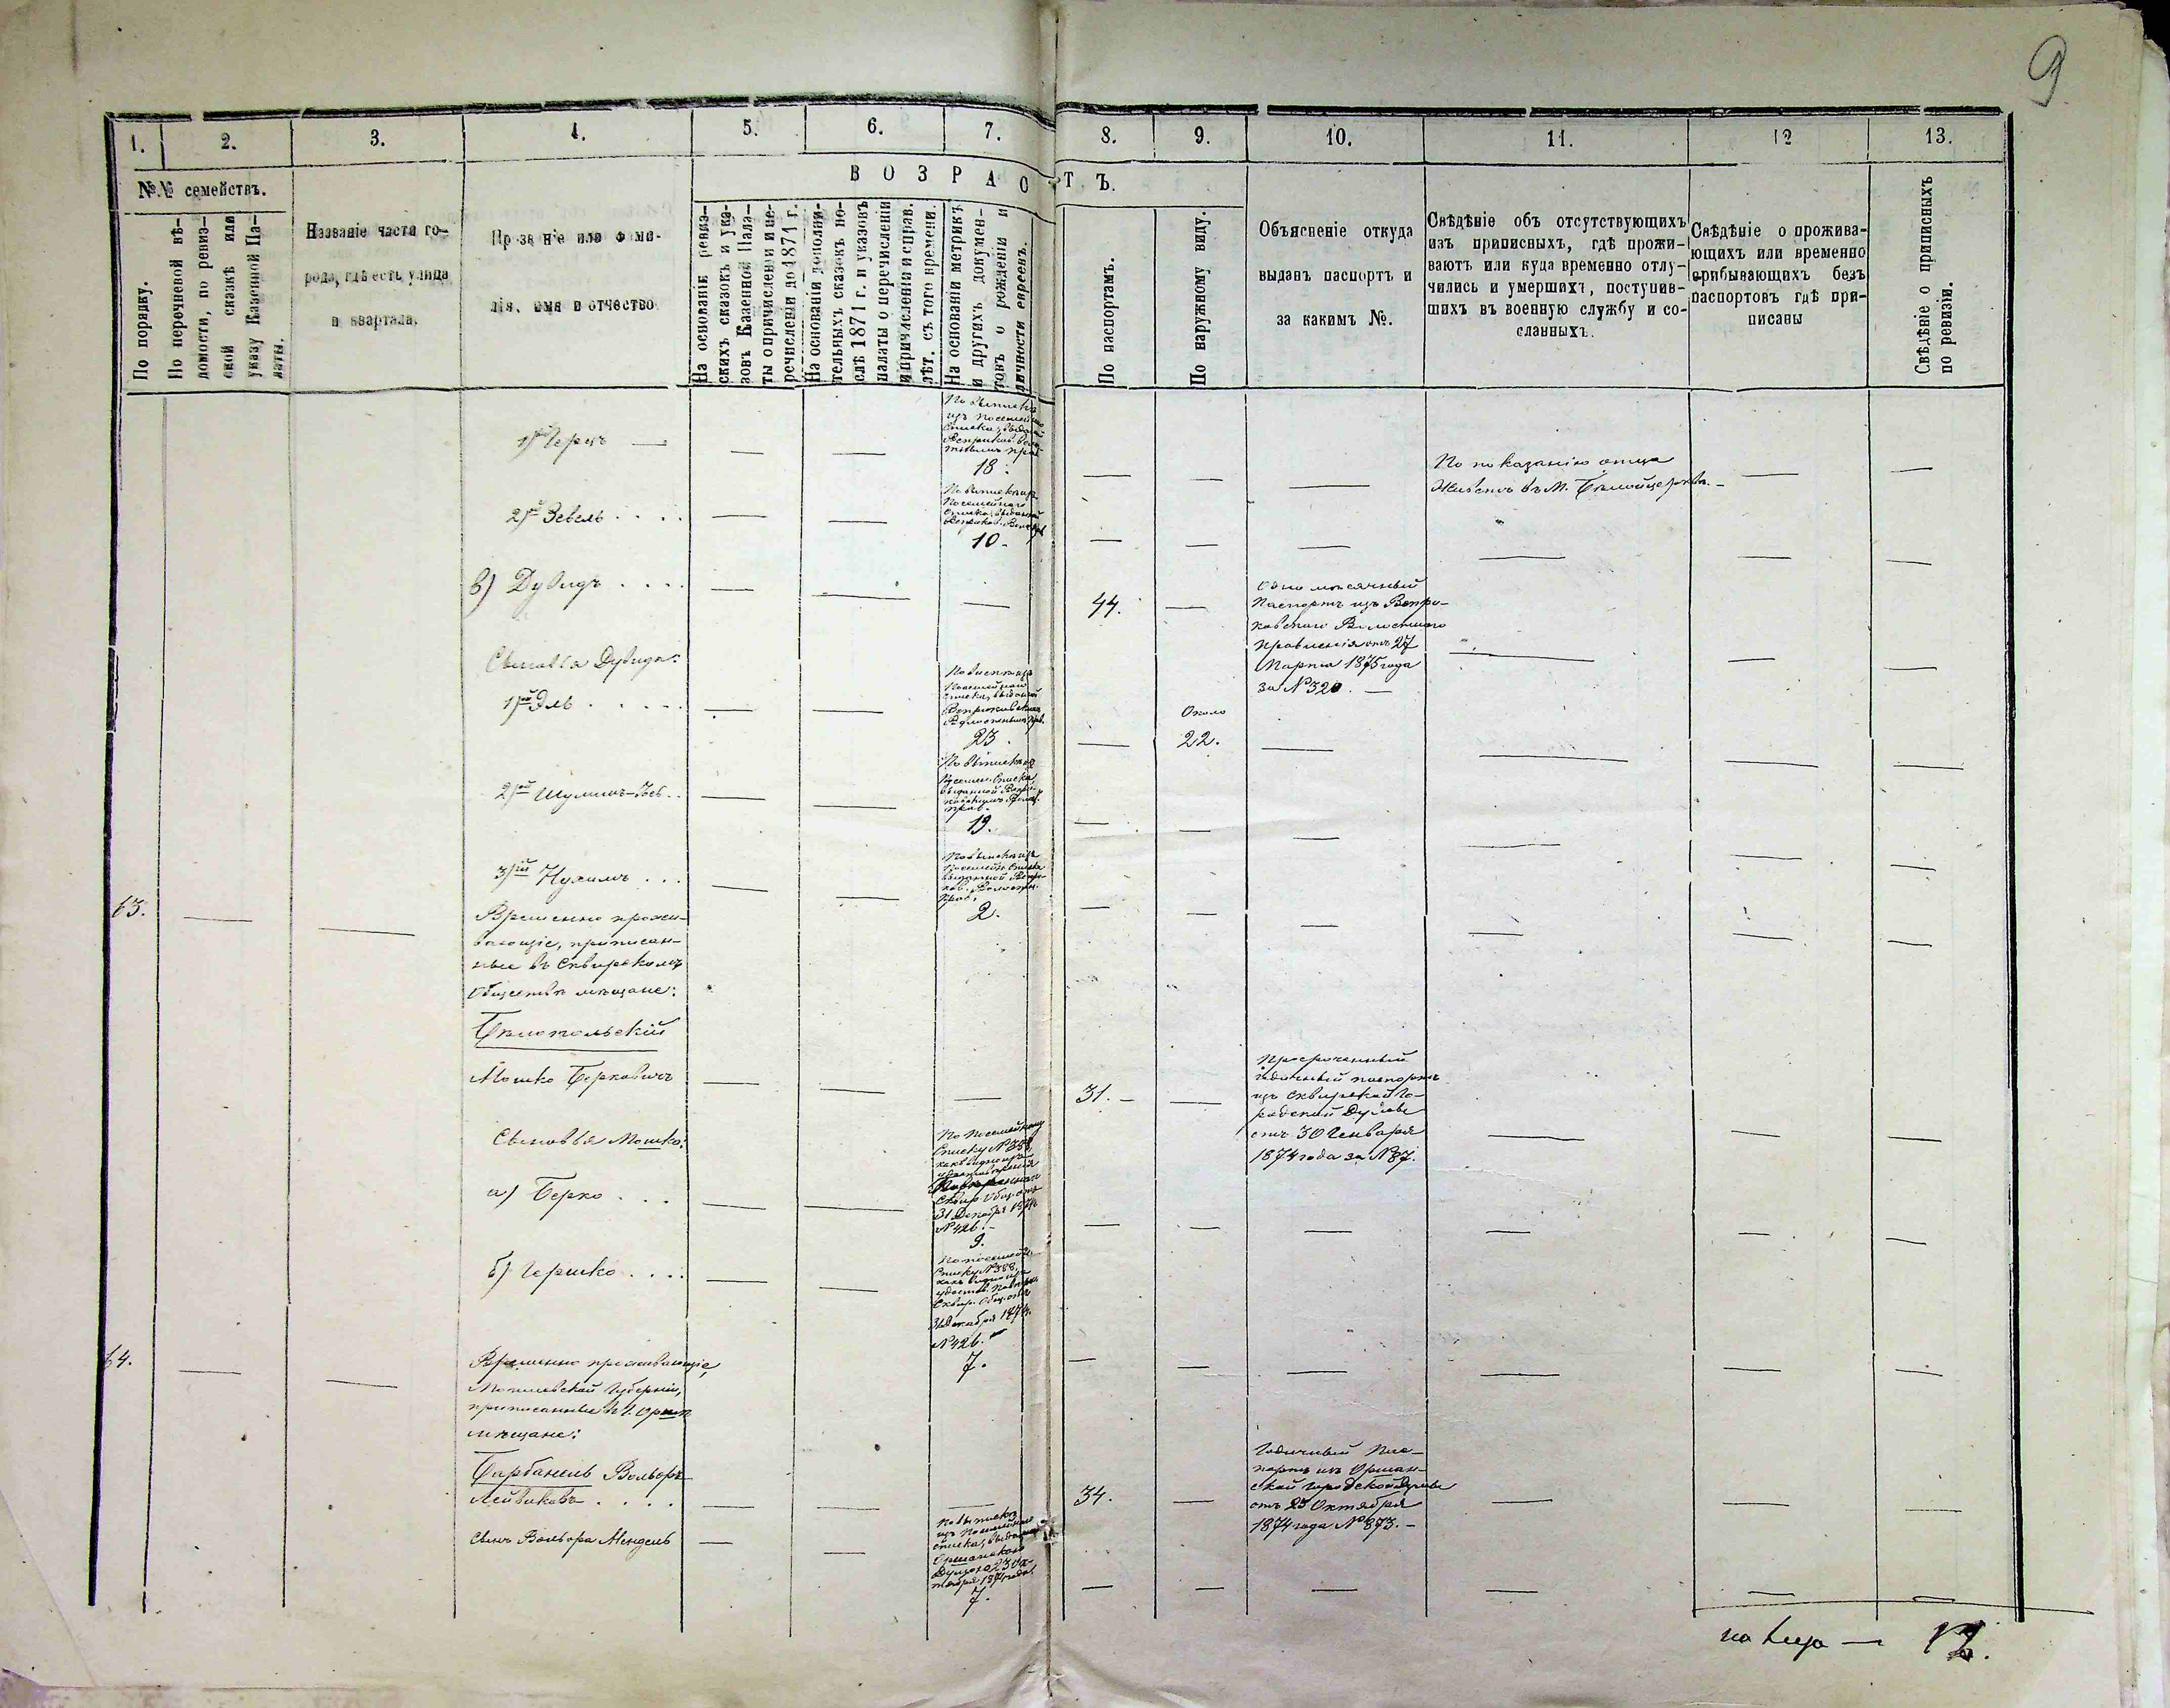 9
1.
2.
3.
4.
5.
6.
7.
8.
9.
10.
11.
12
13.
ВОЗРАСТЪ.
№№ семействъ.
По порядку.
По перечневой вѣ-
домости, по ревиз-
ской сказкѣ или
указу Казенной Па-
латы.
Названіе части го-
рода, гдѣ есть улица
и квартала.
Прозваніе или фами-
лія, имя и отчество
На основаніи ревиз-
скихъ сказокъ и ука-
зовъ Казенной Пала-
ты о причисленіи и пе-
речисленіи до 1871 г.
На основаніи дополни-
тельныхъ сказокъ по-
слѣ 1871 г. и указовъ
палаты о перечисленіи
и причисленіи и справ.
лѣт. съ того времени.
На основаніи метрикъ
и другихъ докумен-
товъ о рожденіи и
личности евреевъ.
По паспортамъ.
По наружному виду.
Объясненіе откуда
выданъ паспортъ и
за какимъ №.
Свѣдѣніе объ отсутствующихъ
изъ приписныхъ, гдѣ прожи-
ваютъ или куда временно отлу-
чились и умершихъ, поступив-
шихъ въ военную службу и со-
сланныхъ.
Свѣдѣніе о прожива-
ющихъ или временно
прибывающихъ безъ
паспортовъ гдѣ при-
писаны
Свѣдѣніе о приписныхъ
по ревизіи.
1) Герцъ —
По выписка
изъ посемейно
списка, выдан
18.
По показанію отца
живетъ въ М. Бѣлойцеркви. -
2) Зевель . . . .
По выписка изъ
Посемейнаго
списка, выданной
10 -
в) Дувидъ . . . .
44.
Одно мѣсячный
Паспортъ изъ Вепри-
ковскаго Волостнаго
Правленія отъ 27
Марта 1875 года
за № 320. —
Сыновья Дувида:
1) Эль . . . . .
По выписка изъ
Посемейнаго
списка, выданной
23.
Около
22.
2) Шулимъ-Іос . .
По выписка изъ
19.
3) Нухимъ . . .
По выписка изъ
2.
63.
Временно прожи-
вающіе, приписан-
ные въ Сквирскомъ
Обществѣ мѣщане:
Бѣлопольскій
Мошко Берковичъ
31. -
Просроченный
годичный паспортъ
изъ Сквирской Го-
родской Думы
отъ 30 Генваря
1874 года за № 87.
Сыновья Мошко:
а) Берко . . .
По Посемейному
Списку № 388,
какъ видно изъ
Сквир. Общ. отъ
31 Декабря 1874
№ 426. -
9.
б) Гершко . . . .
По посемейн.
Списку № 388,
какъ видно изъ
Сквир. Общ. отъ
31 Декабря 1874.
№ 426. —
7.
64.
Временно проживающіе,
Могилевской Губерніи,
приписанные въ г. Оршѣ
мѣщане:
Барбанель Вольфъ
Лейбиковъ . . . .
34.
Годичный Пас-
портъ изъ Оршан-
ской городской Думы
отъ 23 Октября
1874 года № 873. -
Сынъ Вольфа Мендель
По выписка
изъ Посемейнаго
списка, выданной
7.
на лицо — 12.